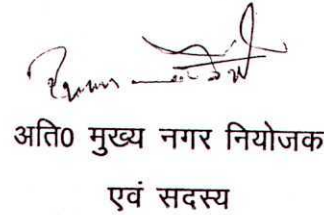 अति0 मुख्य नगर नियोजक
एवं सदस्य